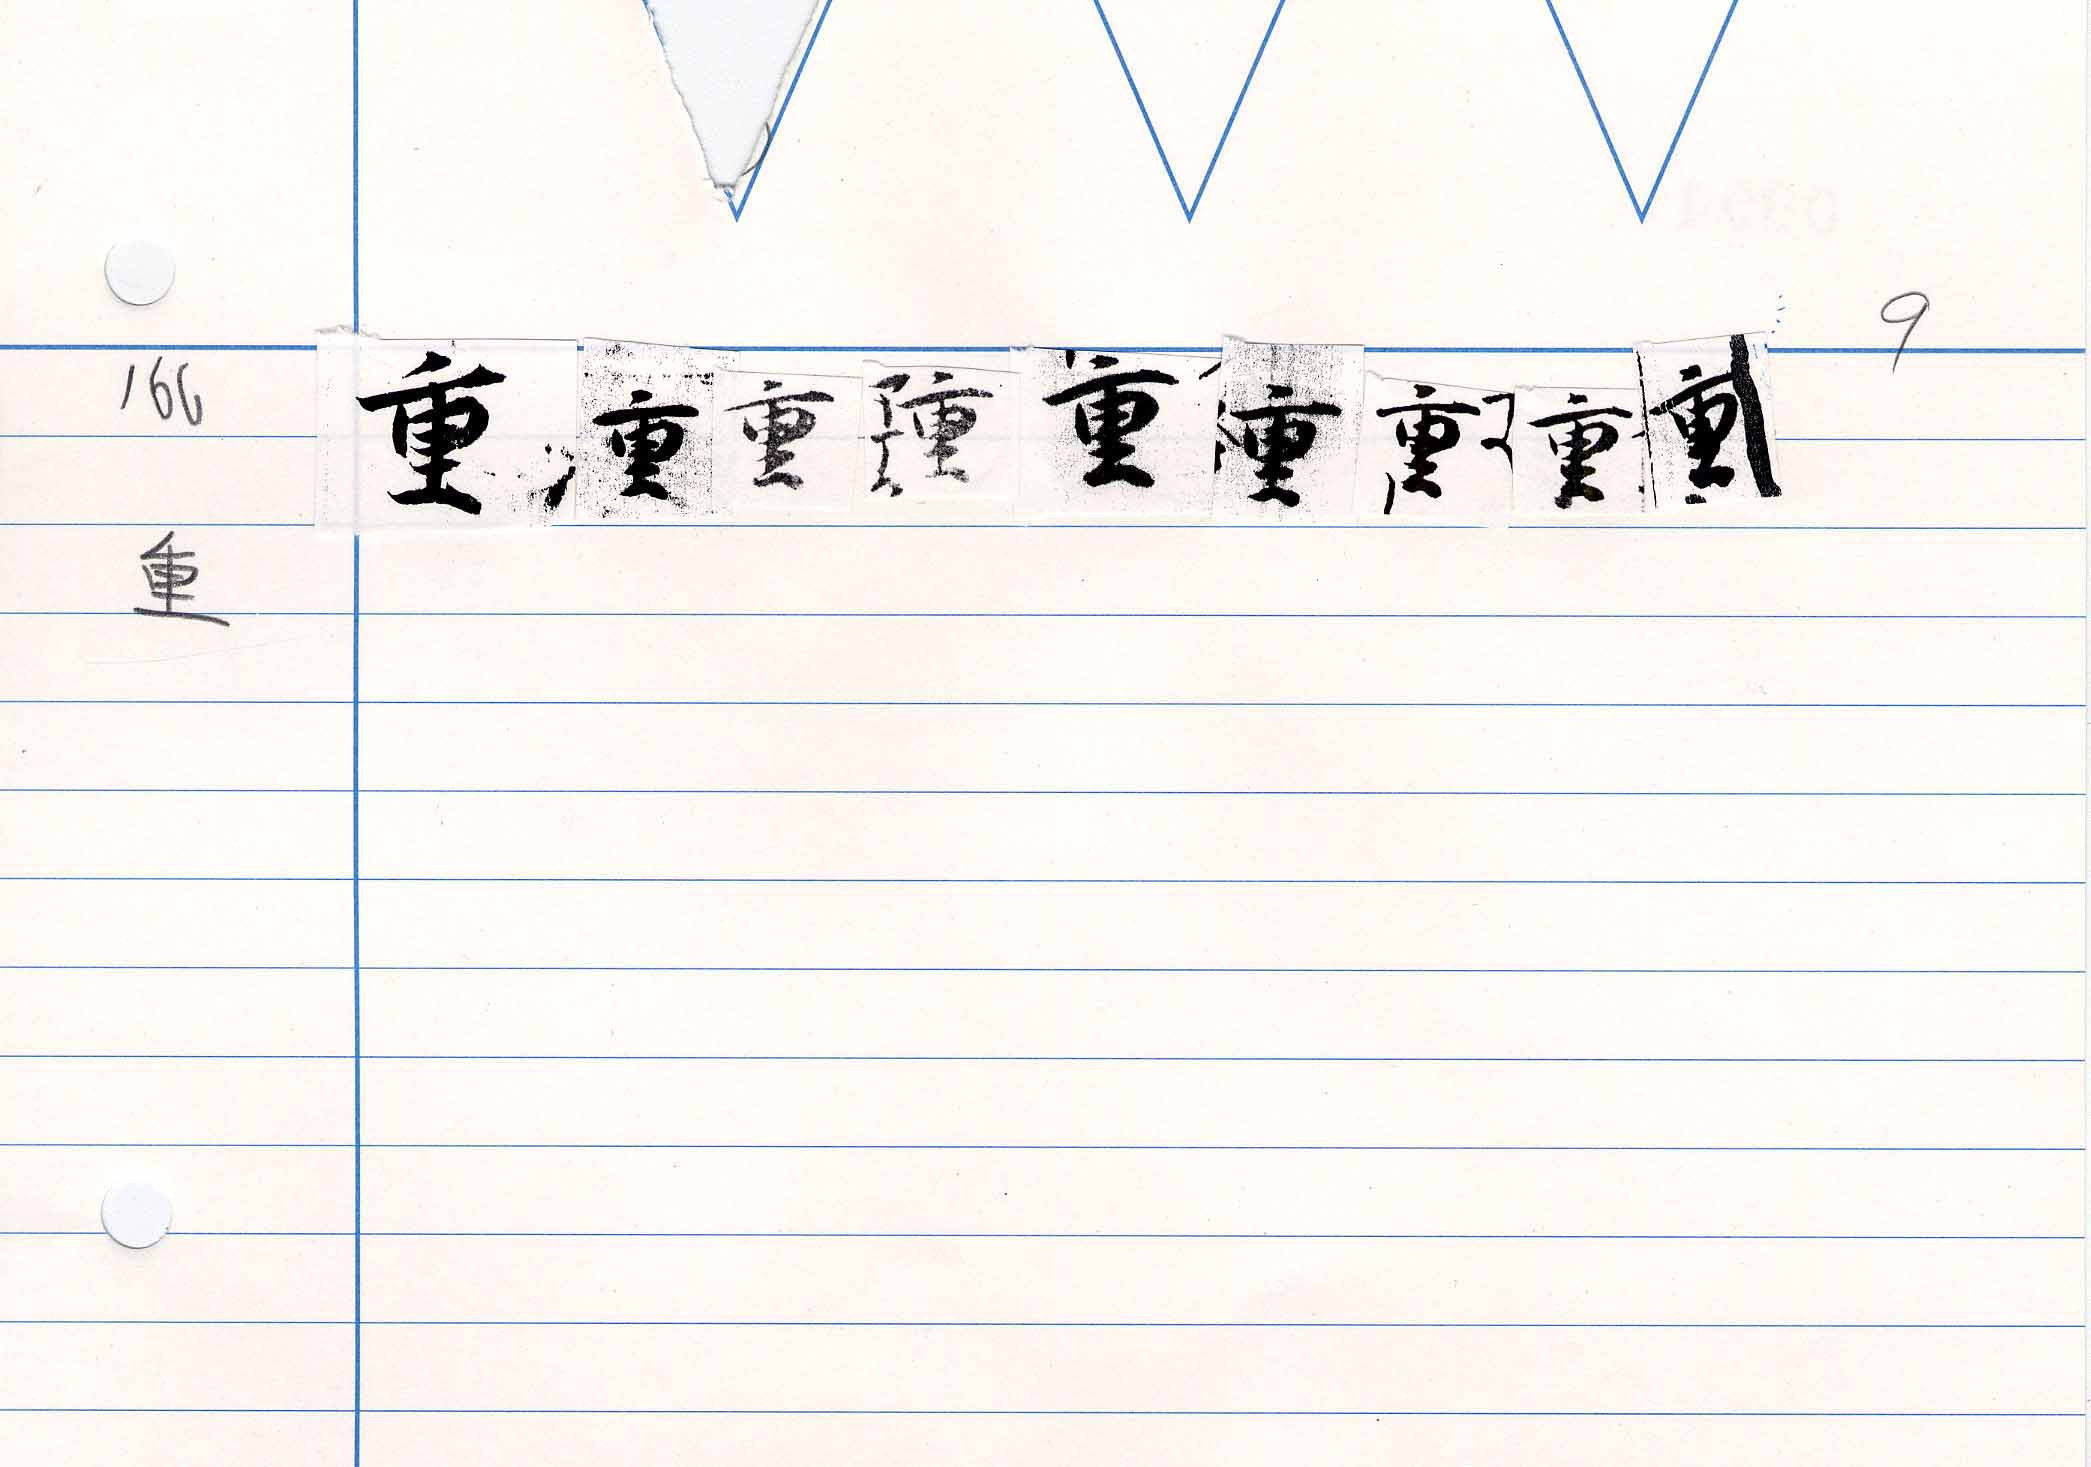 9
166 重重重重重重重重重
重